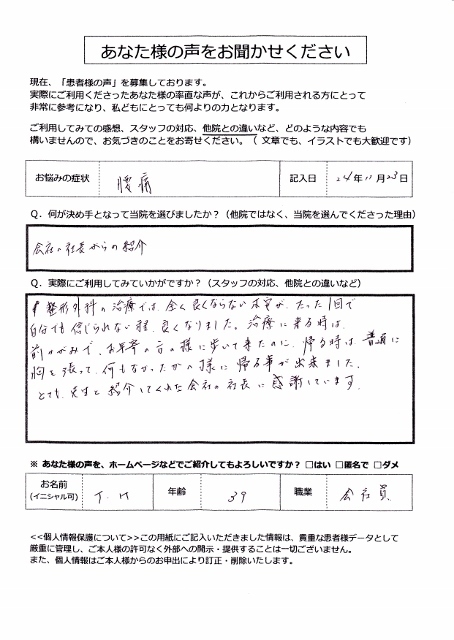 あなた様の声をお聞かせください
現在、「患者様の声」を募集しております。
実際にご利用くださったあなた様の率直な声が、これからご利用される方にとって
非常に参考になり、私どもにとっても何よりの力となります。
ご利用してみての感想、スタッフの対応、他院との違いなど、どのような内容でも
構いませんので、お気づきのことをお寄せください。（ 文章でも、イラストでも大歓迎です）
お悩みの症状 腰痛 記入日 24年11月23日
Q．何が決め手となって当院を選びましたか？（他院ではなく、当院を選んでくださった理由）
会社の社長からの紹介
Q．実際にご利用してみていかがですか？（スタッフの対応、他院との違いなど）
整形外科の治療では、全く良くならない が、たった1回で
自分でも信じられない程、良くなりました。治療に来る時は、
前かがみで、お年寄の方の様に歩いて来たのに、帰る時は普通に
胸を張って、何もなかったかの様に帰る事が出来ました。
とても、先生と紹介してくれた会社の社長に感謝しています。
※ あなた様の声を、ホームページなどでご紹介してもよろしいですか？ □はい □匿名で □ダメ
お名前 T．H 年齢 39 職業 会社員
(イニシャル可)
<<個人情報保護について>>この用紙にご記入いただきました情報は、貴重な患者様データとして
厳重に管理し、ご本人様の許可なく外部への開示・提供することは一切ございません。
また、個人情報はご本人様からのお申出により訂正・削除いたします。